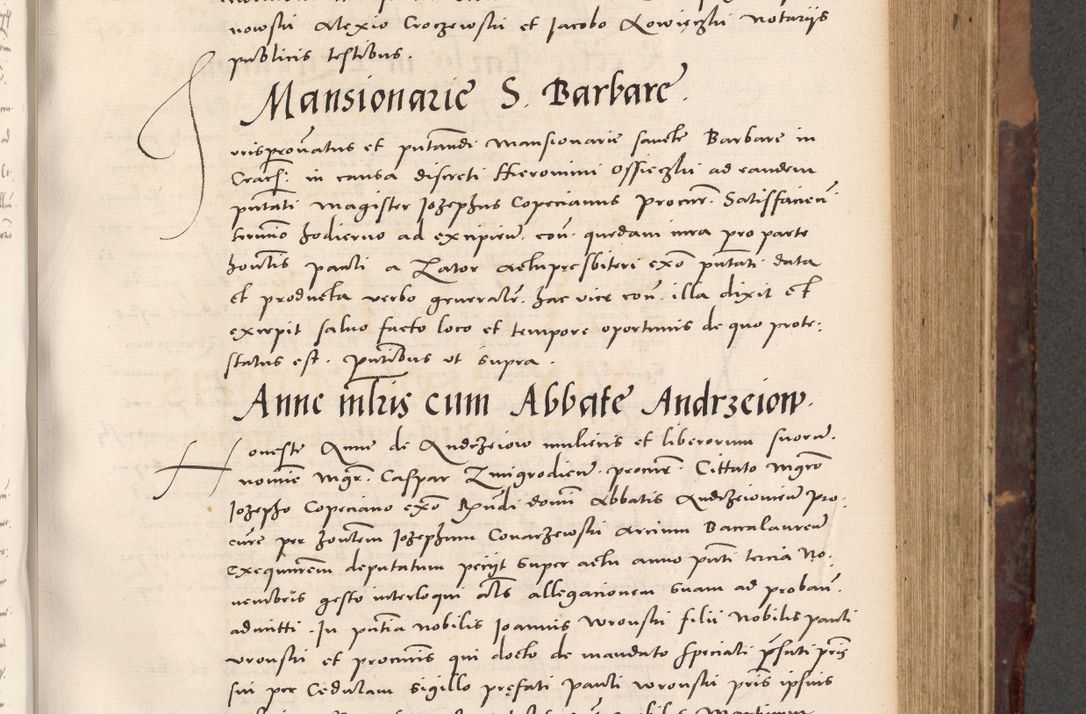 nowski Alexio Croczewski et Jacobo Lowieczki notariis
publicis testibus.
Mansionarie S. Barbare.
Jurisprouatus et putandi mansionarie sancte Barbare in
Cracf: in causa discreti Hieronimi Ossieczki ad eandem
putati magister Jozephus Copecianus procur. Satisfacien
termino hodierno ad excipien. con. quedam iura pro parte
hontis pauli a Zator Aelupresbiteri exo putati data
et producta verbo generali. hac vice con. illa dixit et
excepit saluo facto loco et tempore oportunis de quo prote:
status est. putibus vt supra.
Anne mlris cum Abbate Andrzeiow.
Honeste Anne de Andrzeiow mulieris et liberorum suorum.
nomine mgr. Caspar Zmigrodien. procur. Cittato mgro
Jozepho Copeciano exo Rndi domini Abbatis Andrzeiouien pro:
cure per hontem Jozephum Conarzewski Arcium Baccalaureum
Exequutem deputatum periit super actu anno puti tercia No:
uembris gesto interloqui als allegacionem suam ad proban.
admitti. In putia nobilis Joannis wronski filii nobilis pauli
wronski et procuris qui docto de mandato speciali prefati pris
sui per Cedulam sigillo prefati pauli wronski pris ipsius